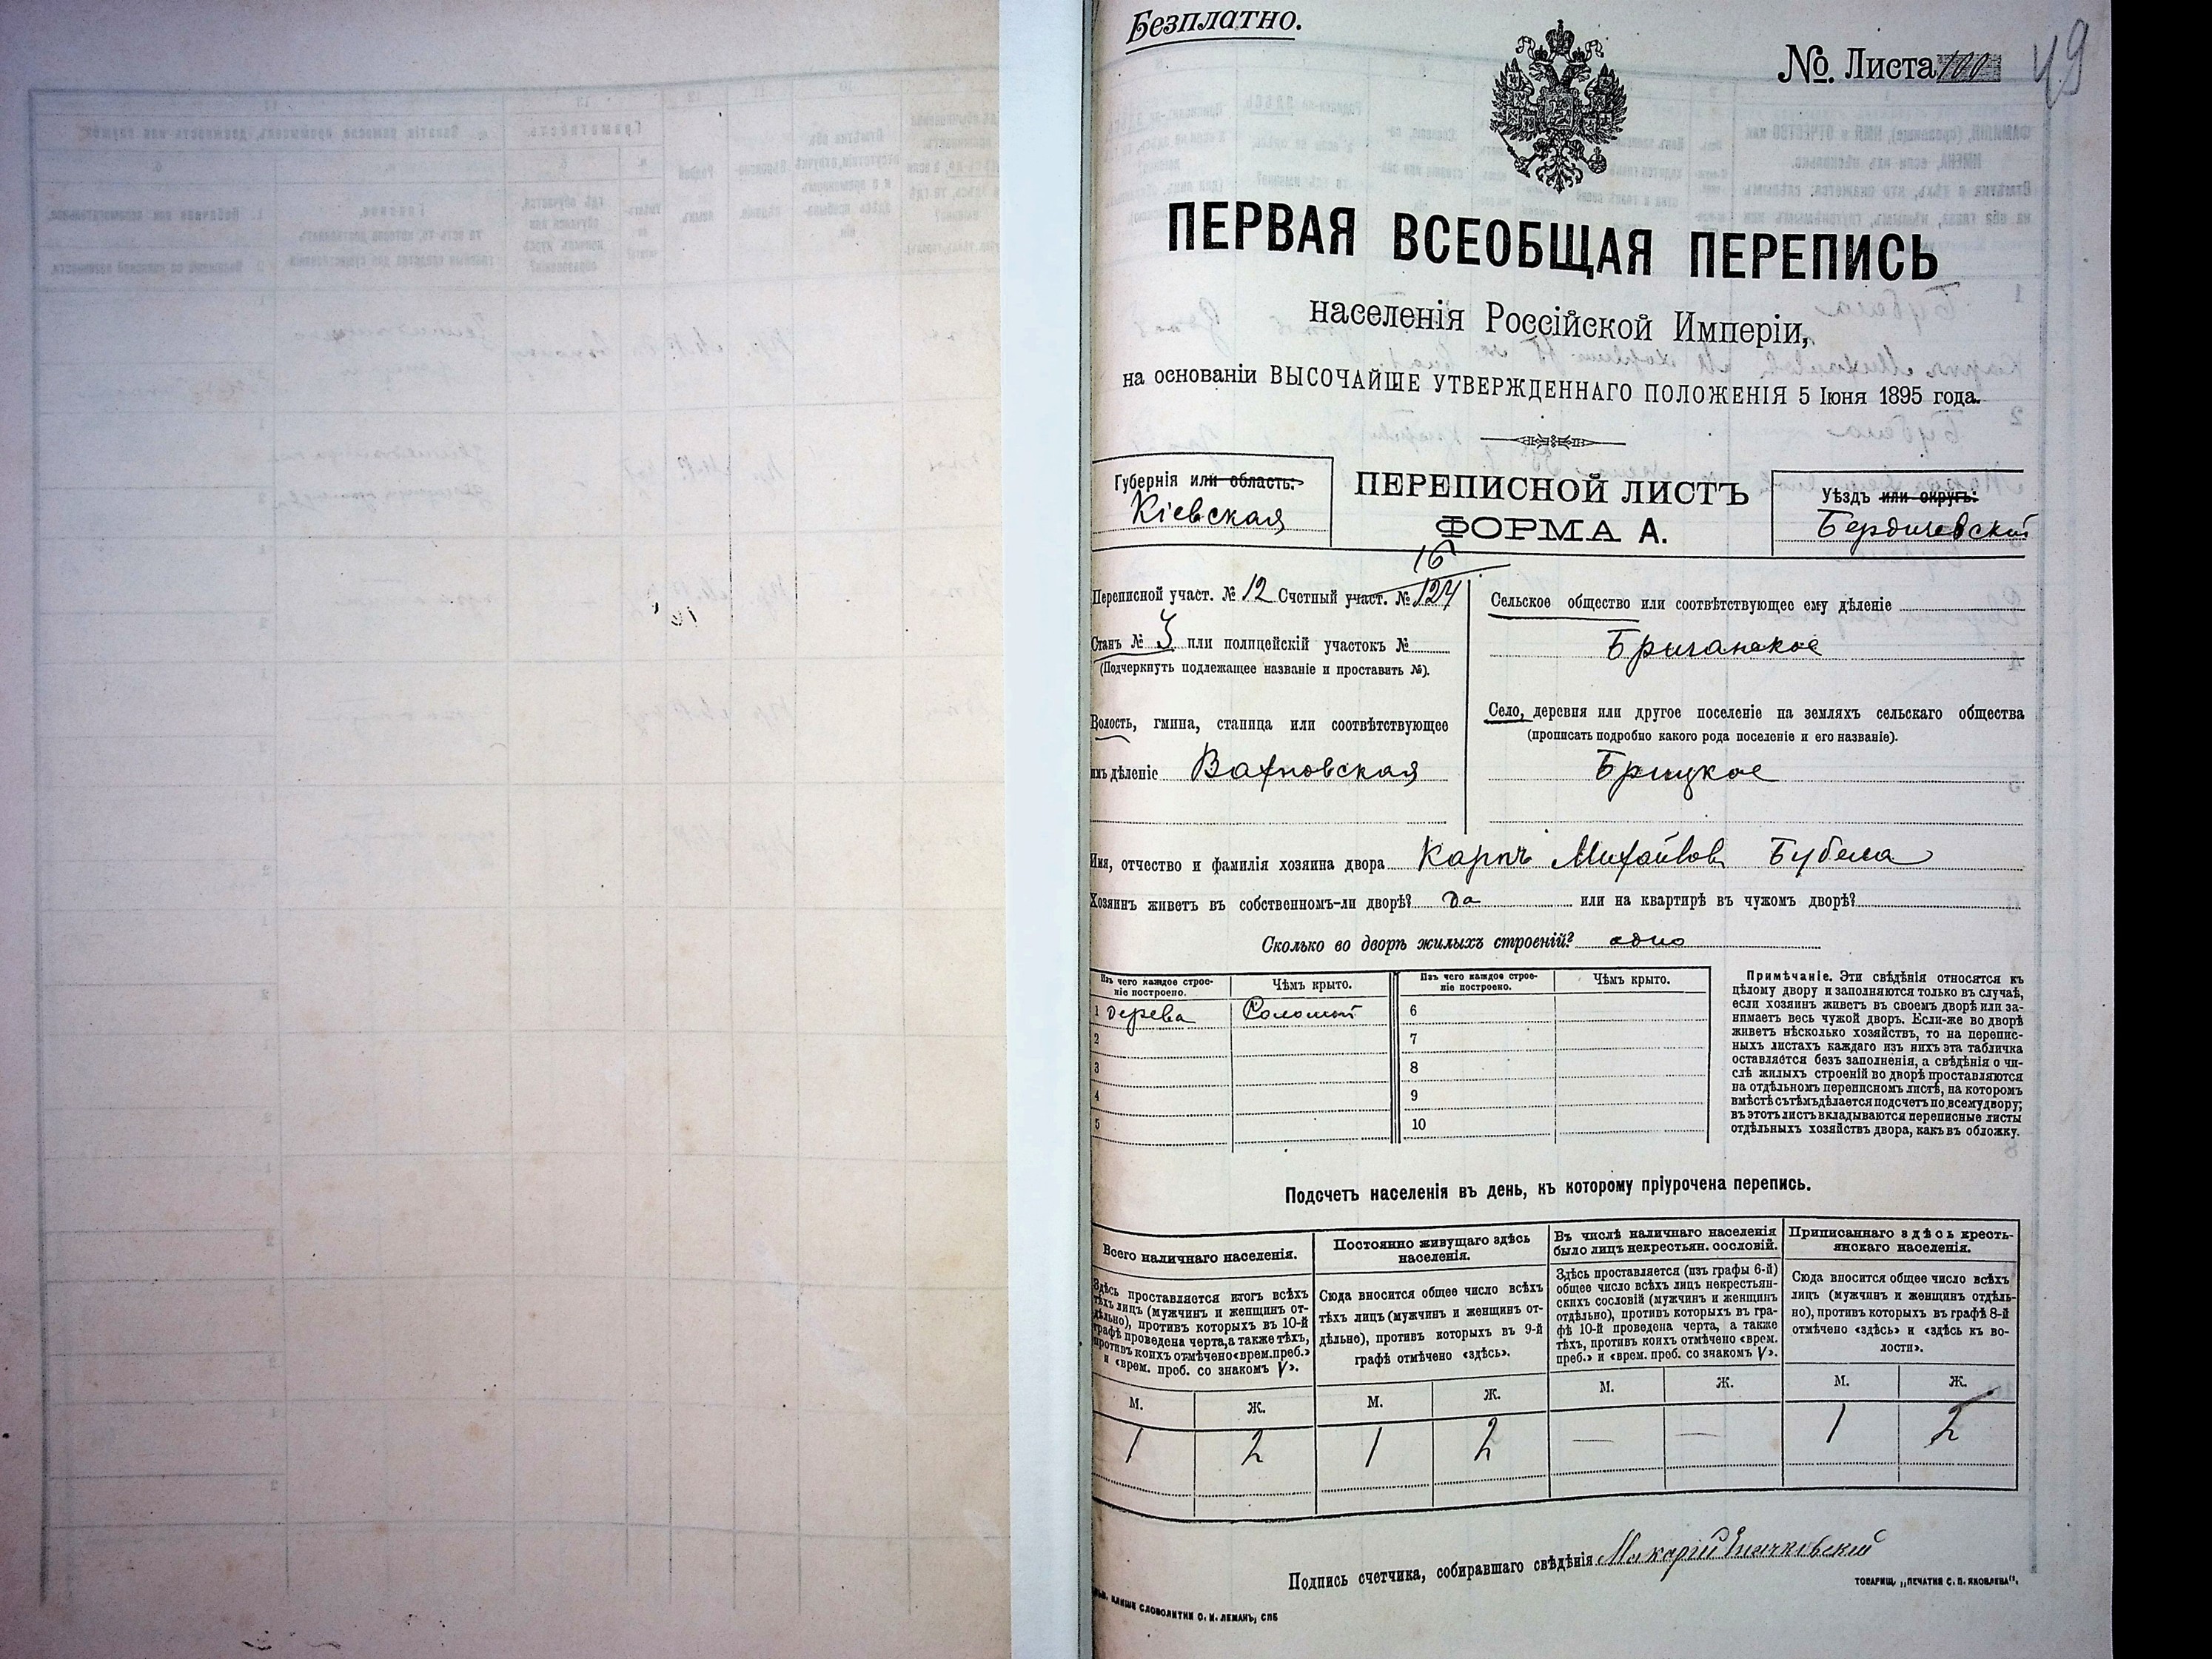 Безплатно.
№. Листа 100
49
ПЕРВАЯ ВСЕОБЩАЯ ПЕРЕПИСЬ
населенія Россійской Имперіи,
на основаніи ВЫСОЧАЙШЕ УТВЕРЖДЕННАГО ПОЛОЖЕНІЯ 5 Іюня 1895 года.
Губернія или область:
Кіевская
ПЕРЕПИСНОЙ ЛИСТЪ
ФОРМА А.
Уѣздъ или округъ:
Бердичевскій
16
Переписной участ. № 12 Счетный участ. № 124
Станъ № 3 или полицейскій участокъ №
(Подчеркнуть подлежащее названіе и проставить №).
Волость, гмина, станица или соотвѣтствующее
имъ дѣленіе Вахновская
Сельское общество или соотвѣтствующее ему дѣленіе
Село, деревня или другое поселеніе на земляхъ сельскаго общества
(прописать подробно какого рода поселеніе и его названіе).
Брицкое
Имя, отчество и фамилія хозяина двора Карпъ Михайлов Бубела
Хозяинъ живетъ въ собственномъ-ли дворѣ? да или на квартирѣ въ чужомъ дворѣ?
Сколько во дворѣ жилыхъ строеній? одно
Изъ чего каждое строе-
ніе построено.
Чѣмъ крыто.
Изъ чего каждое строе-
ніе построено.
Чѣмъ крыто.
1 дерева Соломой 6
2 7
3 8
4 9
5 10
Примѣчаніе. Эти свѣдѣнія относятся къ
цѣлому двору и заполняются только въ случаѣ,
если хозяинъ живетъ въ своемъ дворѣ или за-
нимаетъ весь чужой дворъ. Если-же во дворѣ
живетъ нѣсколько хозяйствъ, то на перепис-
ныхъ листахъ каждаго изъ нихъ эта табличка
оставляется безъ заполненія, а свѣдѣнія о чи-
слѣ жилыхъ строеній во дворѣ проставляются
на отдѣльномъ переписномъ листѣ, на которомъ
вмѣстѣ съ тѣмъ дѣлается подсчетъ по всему двору;
въ этотъ листъ вкладываются переписные листы
отдѣльныхъ хозяйствъ двора, какъ въ обложку.
Подсчетъ населенія въ день, къ которому пріурочена перепись.
Всего наличнаго населенія.
Здѣсь проставляется итогъ всѣхъ
тѣхъ лицъ (мужчинъ и женщинъ от-
дѣльно), противъ которыхъ въ 10-й
графѣ проведена черта, а также тѣхъ,
противъ коихъ отмѣчено «врем. преб.»
и «врем. проб. со знакомъ V».
М. Ж.
1 2
Постоянно живущаго здѣсь
населенія.
Сюда вносится общее число всѣхъ
тѣхъ лицъ (мужчинъ и женщинъ от-
дѣльно), противъ которыхъ въ 9-й
графѣ отмѣчено «здѣсь».
М. Ж.
1 2
Въ числѣ наличнаго населенія
было лицъ некрестьян. сословій.
Здѣсь проставляется (изъ графы 6-й)
общее число всѣхъ лицъ некрестьян-
скихъ сословій (мужчинъ и женщинъ
отдѣльно), противъ которыхъ въ гра-
фѣ 10-й проведена черта, а также
тѣхъ, противъ коихъ отмѣчено «врем.
преб.» и «врем. проб. со знакомъ V».
М. Ж.
— —
Приписаннаго здѣсь кресть-
янскаго населенія.
Сюда вносится общее число всѣхъ
лицъ (мужчинъ и женщинъ отдѣль-
но), противъ которыхъ въ графѣ 8-й
отмѣчено «здѣсь» и «здѣсь къ во-
лости».
М. Ж.
1 2
Подпись счетчика, собиравшаго свѣдѣнія Макарій
КЛИШЕ СЛОВОЛИТНИ О. И. ЛЕМАНЪ, СПБ
ТОВАРИЩ. „ПЕЧАТНЯ С. П. ЯКОВЛЕВА“.